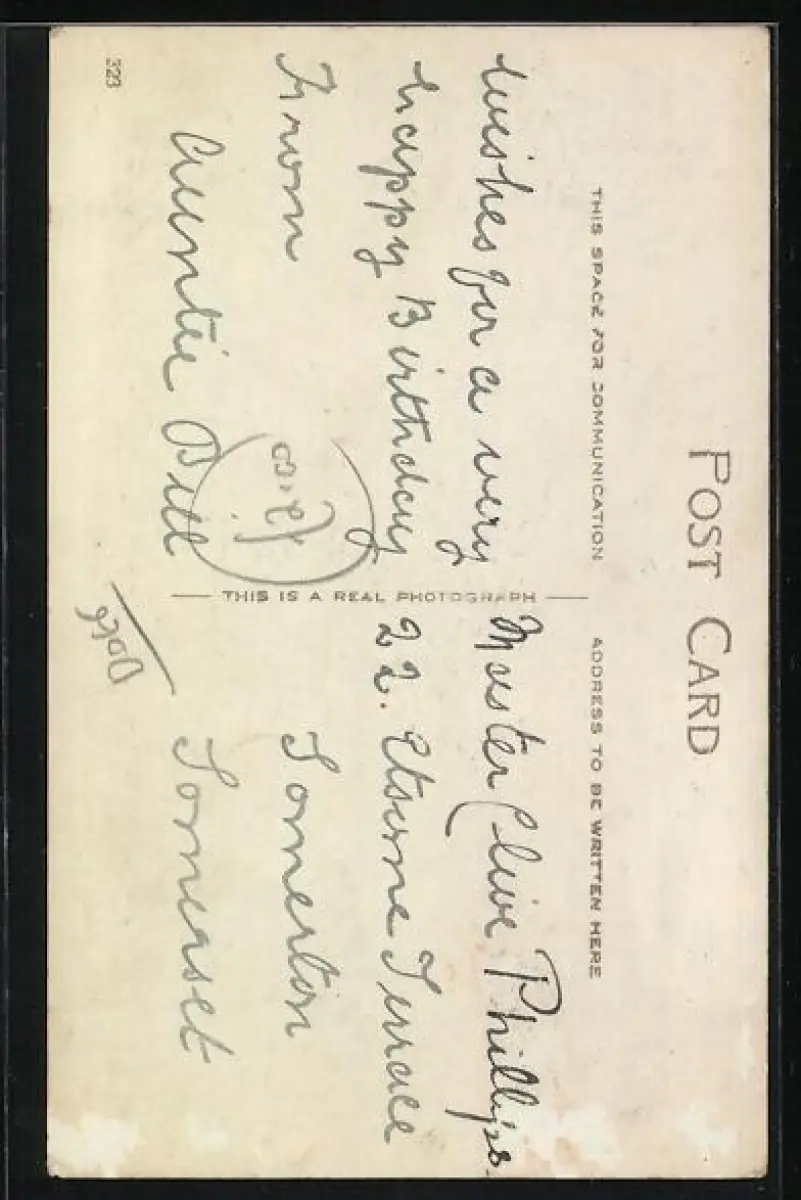 POST CARD
THIS SPACE FOR COMMUNICATION
ADDRESS TO BE WRITTEN HERE
wishes for a very
happy Birthday
From
Auntie Bill
THIS IS A REAL PHOTOGRAPH
Master Clive Phillips
22. Terrace
Somerton
Somerset
323